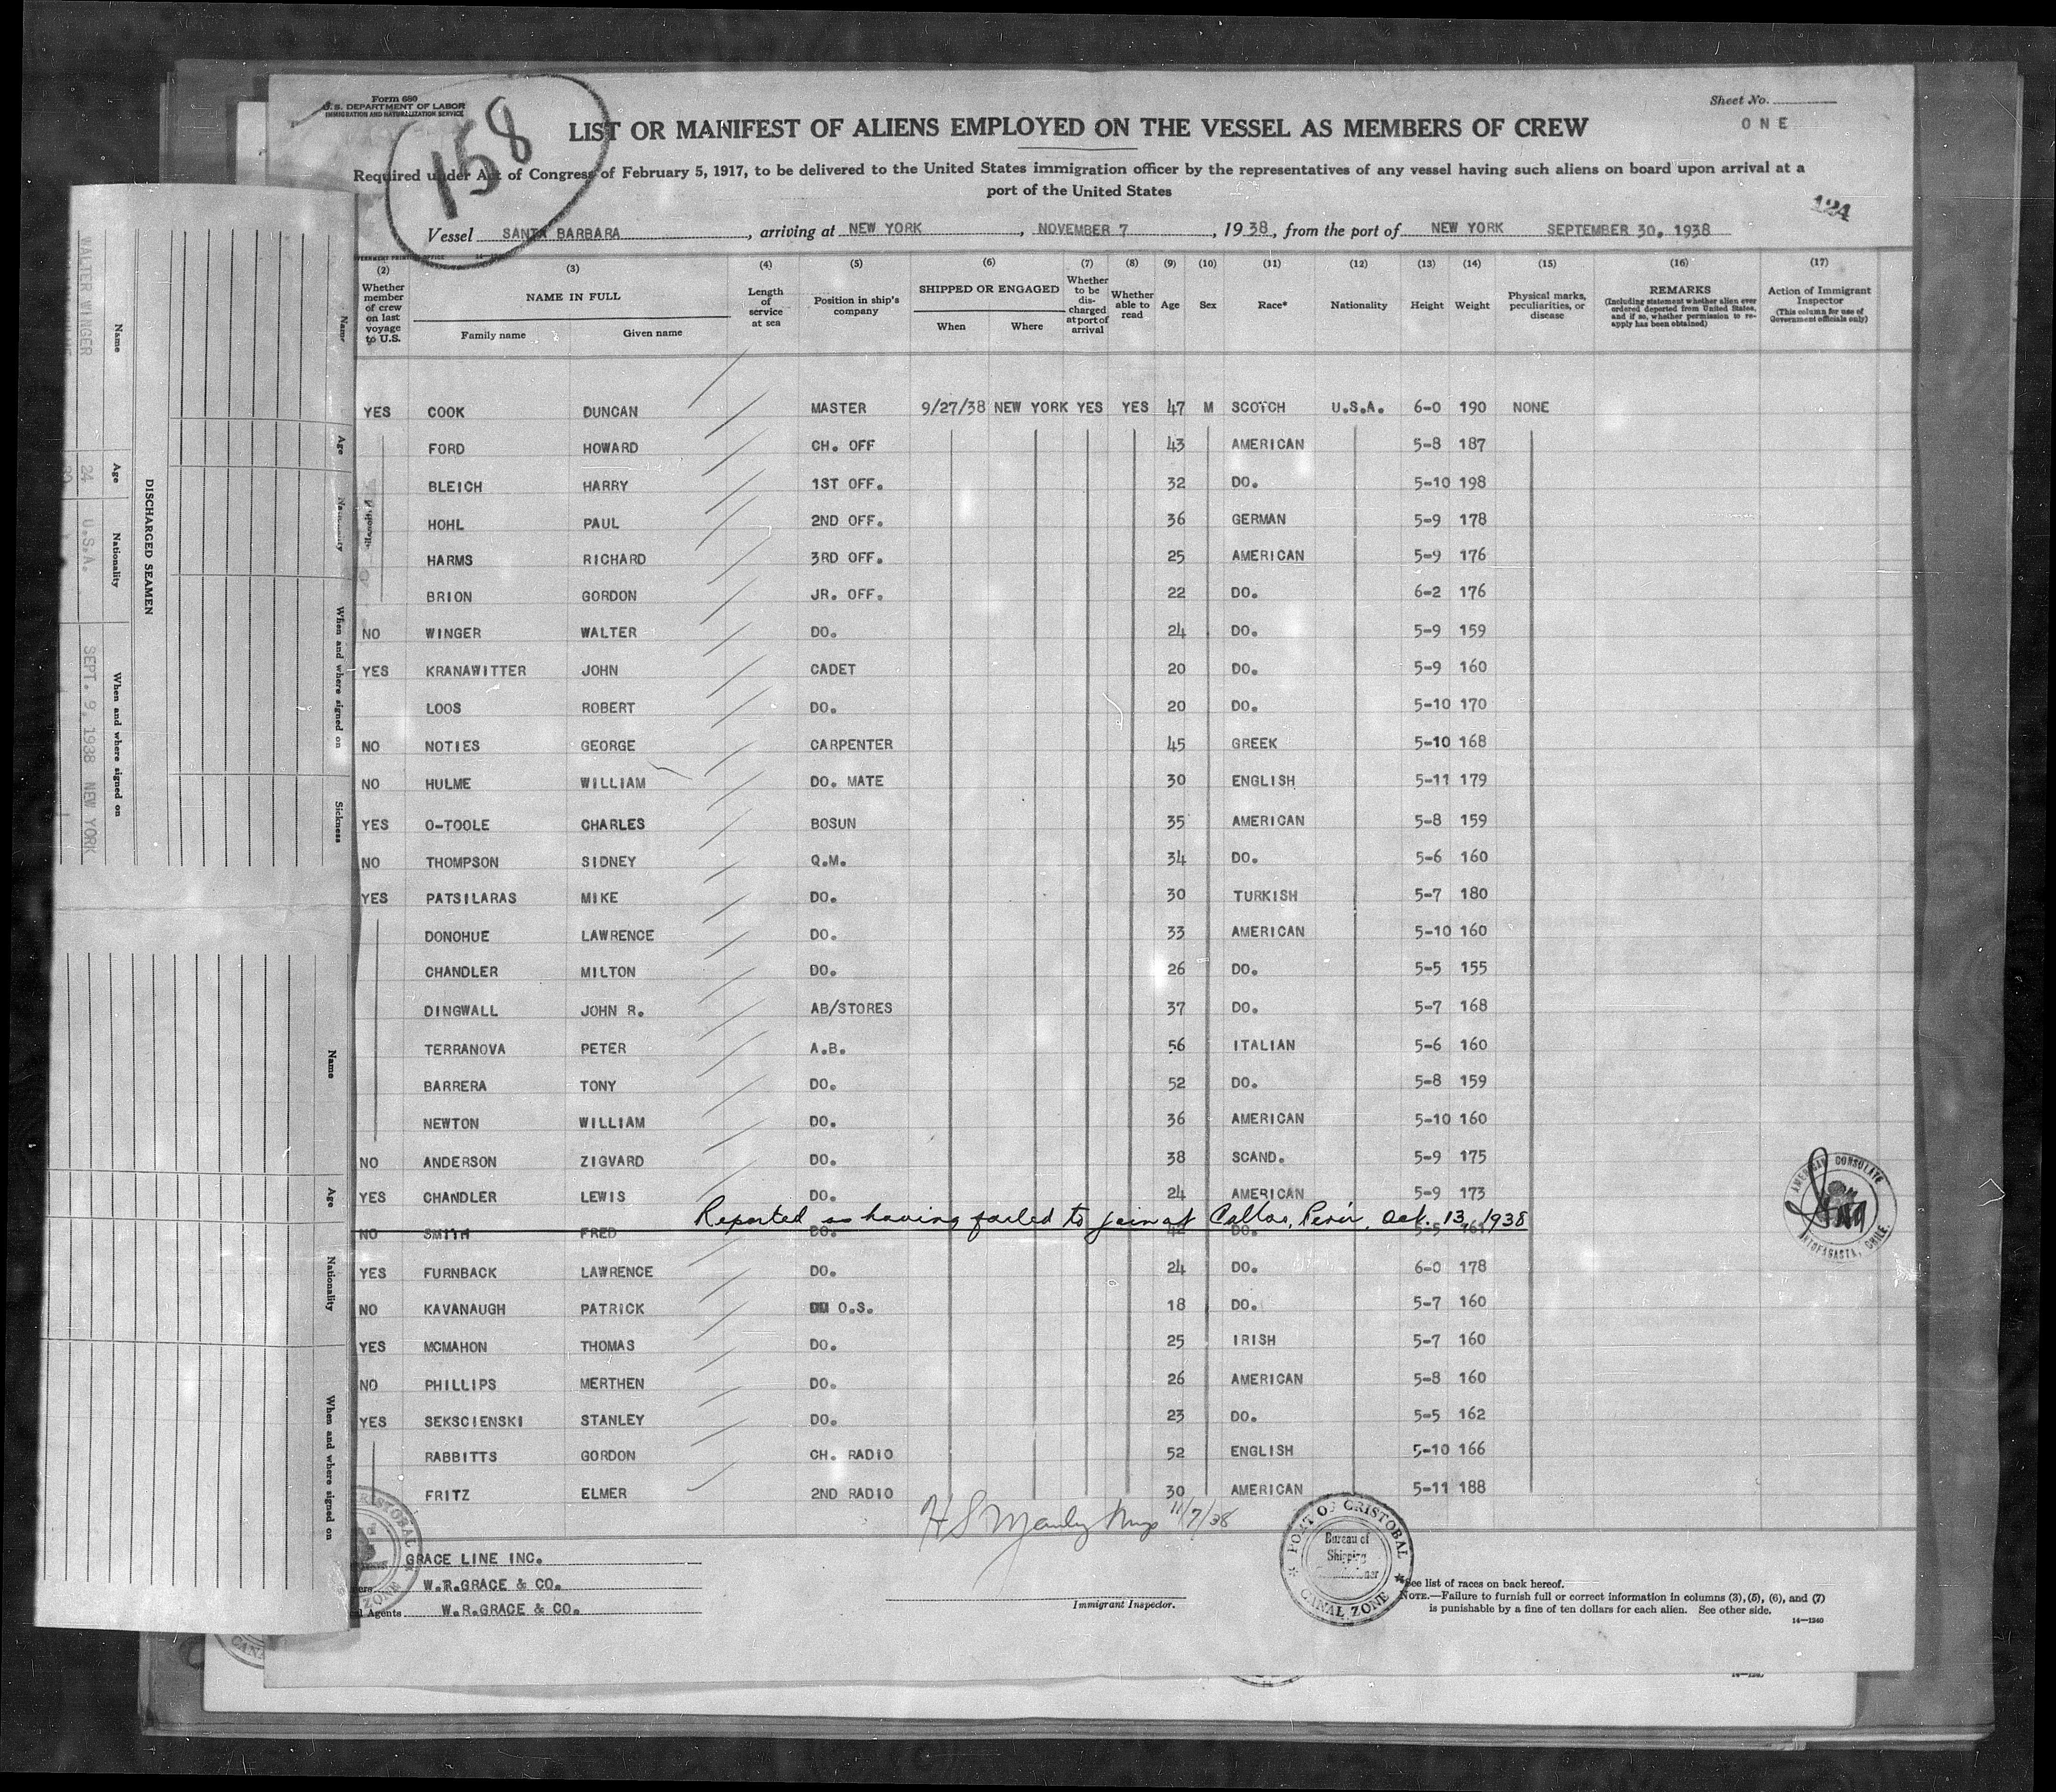 Form 680
U.S. DEPARTMENT OF LABOR
IMMIGRATION AND NATURALIZATION SERVICE
158
Sheet No.
ONE
LIST OR MANIFEST OF ALIENS EMPLOYED ON THE VESSEL AS MEMBERS OF CREW
Required under Act of Congress of February 5, 1917, to be delivered to the United States immigration officer by the representatives of any vessel having such aliens on board upon arrival at a
port of the United States
124
Vessel SANTA BARBARA, arriving at NEW YORK, NOVEMBER 7, 1938, from the port of NEW YORK SEPTEMBER 30, 1938
(2) (3) (4) (5) (6) (7) (8) (9) (10) (11) (12) (13) (14) (15) (16) (17)
Whether member of crew on last voyage to U.S.
NAME IN FULL
Family name Given name
Length of service at sea
Position in ship's company
SHIPPED OR ENGAGED
When Where
Whether to be discharged at port of arrival
Whether able to read
Age
Sex
Race*
Nationality
Height
Weight
Physical marks, peculiarities, or disease
REMARKS
(Including statement whether alien ever ordered deported from United States, and if so, whether permission to reapply has been obtained)
Action of Immigrant Inspector
(This column for use of Government officials only)
YES COOK DUNCAN MASTER 9/27/38 NEW YORK YES YES 47 M SCOTCH U.S.A. 6-0 190 NONE
FORD HOWARD CH. OFF 43 AMERICAN 5-8 187
BLEICH HARRY 1ST OFF. 32 DO. 5-10 198
HOHL PAUL 2ND OFF. 36 GERMAN 5-9 178
HARMS RICHARD 3RD OFF. 25 AMERICAN 5-9 176
BRION GORDON JR. OFF. 22 DO. 6-2 176
NO WINGER WALTER DO. 24 DO. 5-9 159
YES KRANAWITTER JOHN CADET 20 DO. 5-9 160
LOOS ROBERT DO. 20 DO. 5-10 170
NO NOTIES GEORGE CARPENTER 45 GREEK 5-10 168
NO HULME WILLIAM DO. MATE 30 ENGLISH 5-11 179
YES O-TOOLE CHARLES BOSUN 35 AMERICAN 5-8 159
NO THOMPSON SIDNEY Q.M. 34 DO. 5-6 160
YES PATSILARAS MIKE DO. 30 TURKISH 5-7 180
DONOHUE LAWRENCE DO. 33 AMERICAN 5-10 160
CHANDLER MILTON DO. 26 DO. 5-5 155
DINGWALL JOHN R. AB/STORES 37 DO. 5-7 168
TERRANOVA PETER A.B. 56 ITALIAN 5-6 160
BARRERA TONY DO. 52 DO. 5-8 159
NEWTON WILLIAM DO. 36 AMERICAN 5-10 160
NO ANDERSON ZIGVARD DO. 38 SCAND. 5-9 175
YES CHANDLER LEWIS DO. 24 AMERICAN 5-9 173
Reported as having failed to join at Callao, Perú, Oct. 13, 1938
NO SMITH FRED DO. 42 DO. 5-5 161
YES FURNBACK LAWRENCE DO. 24 DO. 6-0 178
NO KAVANAUGH PATRICK O.S. 18 DO. 5-7 160
YES MCMAHON THOMAS DO. 25 IRISH 5-7 160
NO PHILLIPS MERTHEN DO. 26 AMERICAN 5-8 160
YES SEKSCIENSKI STANLEY DO. 23 DO. 5-5 162
RABBITTS GORDON CH. RADIO 52 ENGLISH 5-10 166
FRITZ ELMER 2ND RADIO 30 AMERICAN 5-11 188
11/7/38
GRACE LINE INC.
W.R.GRACE & CO.
Agents W.R.GRACE & CO.
Immigrant Inspector.
PORT OF CRISTOBAL
Bureau of
Shipping
CANAL ZONE
AMERICAN CONSULATE
ANTOFAGASTA, CHILE.
*See list of races on back hereof.
NOTE.—Failure to furnish full or correct information in columns (3), (5), (6), and (7)
is punishable by a fine of ten dollars for each alien. See other side.
14—1240
DISCHARGED SEAMEN
Name Age Nationality When and where signed on
WALTER WINGER 24 U.S.A. SEPT. 9, 1938 NEW YORK
Name Age Nationality When and where signed on Sickness
Name Age Nationality When and where signed on